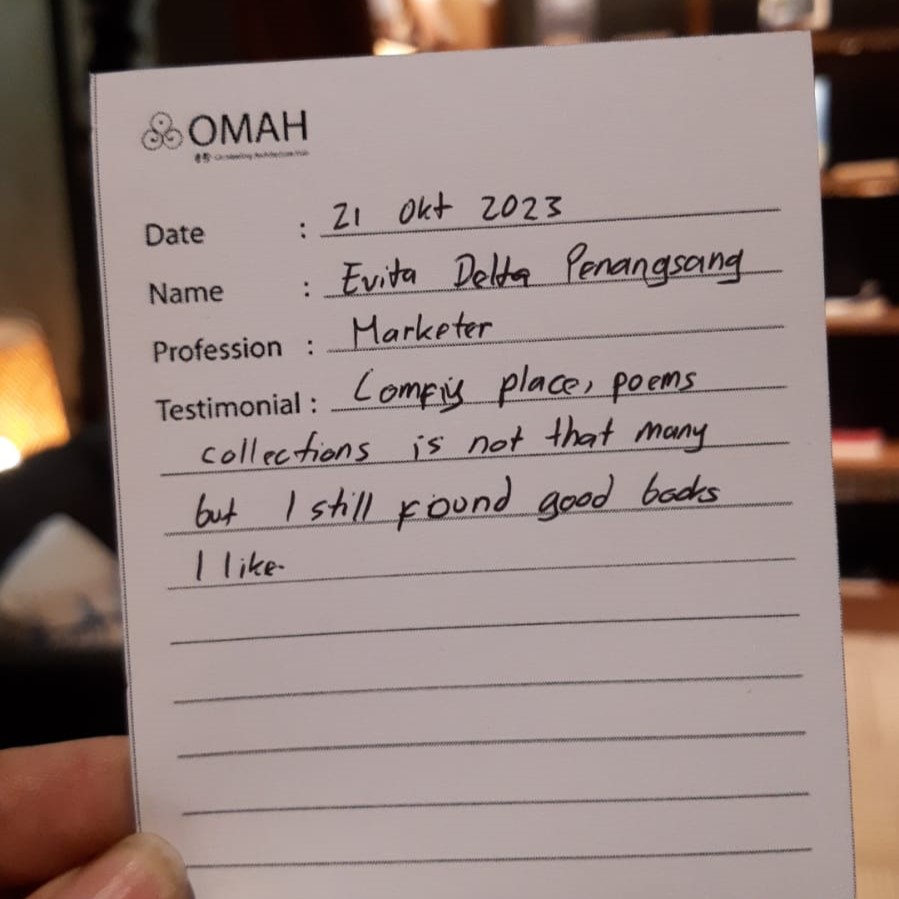 OMAH
Date : 21 Okt 2023
Name : Evita Delta Penangsang
Profession : Marketer
Testimonial : Comfiy place, poems
collections is not that many
but I still found good books
I like.